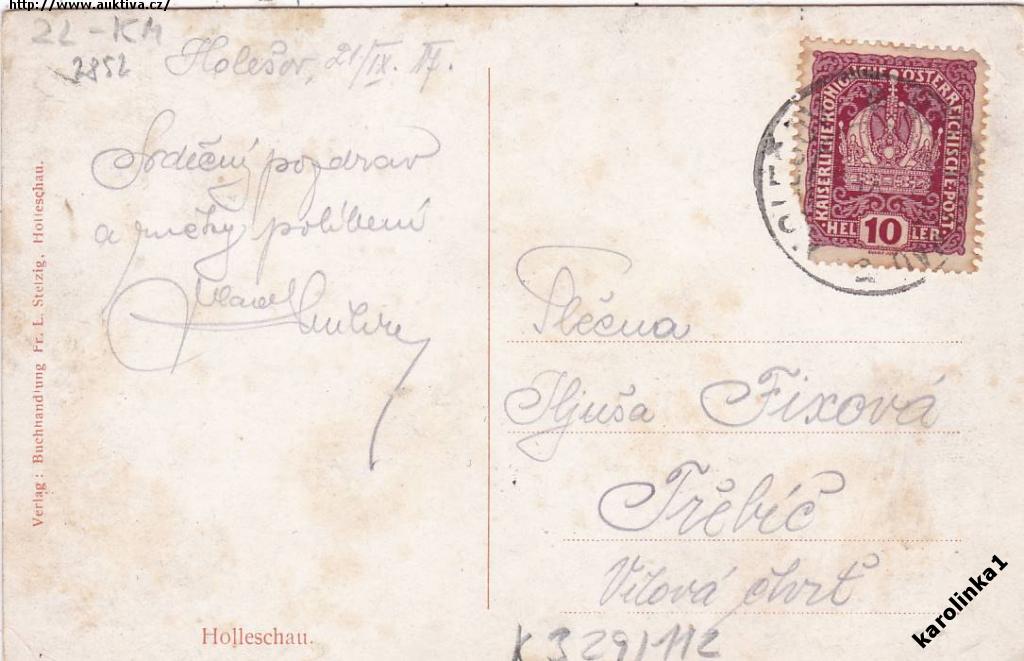 http://www.auktiva.cz/
22-KM
2852
Holešov, 21/IX. 17.
Srdečný pozdrav
a ručky políbení
Verlag: Buchhandlung Fr. L. Stelzig, Holleschau.
Holleschau.
KAISERLICHE KÖNIGLICHE ÖSTERREICHISCHE POST
HELLER
10
Slečna
Iljuša Fixová
Třebíč
Vilová čtvrť
K 329/112
karolinka1